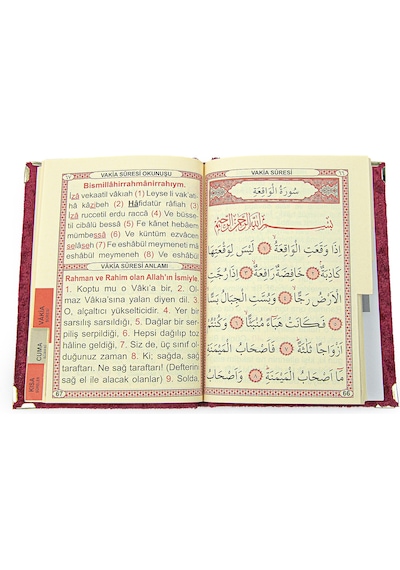 VAKİA SÛRESİ OKUNUŞU
Bismillâhirrahmânirrahıym.
İzâ vekaatil vâkıah (1) Leyse li vak'ati
hâ kâzibeh (2) Hâfidatür râfiah (3)
İzâ ruccetil erdu raccâ (4) Ve büsse-
til cibâlü bessâ (5) Fe kânet hebaen
mümbessâ (6) Ve küntüm ezvâcen
selâseh (7) Fe eshâbül meymeneti mâ
eshâbül meymeneh (8) Ve eshâbül
VAKİA SÛRESİ ANLAMI
Rahman ve Rahim olan Allah'ın İsmiyle.
1. Koptu mu o Vâkı'a bir, 2. Ol-
maz Vâkıa'sına yalan diyen dil. 3.
O, alçaltıcı yükselticidir. 4. Yer bir
sarsılış sarsıldığı, 5. Dağlar bir ser-
piliş serpildiği, 6. Hep dağılıp toz
hâline geldiği, 7. Siz de, üç sınıf ol-
duğunuz zaman 8. Ki; sağda, sağ
taraftarı. Ne sağ taraftarı! (Defterini
sağ el ile alacak olanlar) 9. Solda,
67
VÂKIA
CUMA
KISA
VAKİA SÛRESİ
سُورَةُ الْوَاقِعَةِ
بِسْمِ اللهِ الرَّحْمٰنِ الرَّحِيمِ
اِذَا وَقَعَتِ الْوَاقِعَةُ ﴿١﴾ لَيْسَ لِوَقْعَتِهَا
كَاذِبَةٌ ﴿٢﴾ خَافِضَةٌ رَافِعَةٌ ﴿٣﴾ اِذَا رُجَّتِ
الْاَرْضُ رَجًّا ﴿٤﴾ وَبُسَّتِ الْجِبَالُ بَسًّا
﴿٥﴾ فَكَانَتْ هَبَٓاءً مُنْبَثًّا ﴿٦﴾ وَكُنْتُمْ
اَزْوَاجًا ثَلٰثَةً ﴿٧﴾ فَاَصْحَابُ الْمَيْمَنَةِ
مَٓا اَصْحَابُ الْمَيْمَنَةِ ﴿٨﴾ وَاَصْحَابُ
66